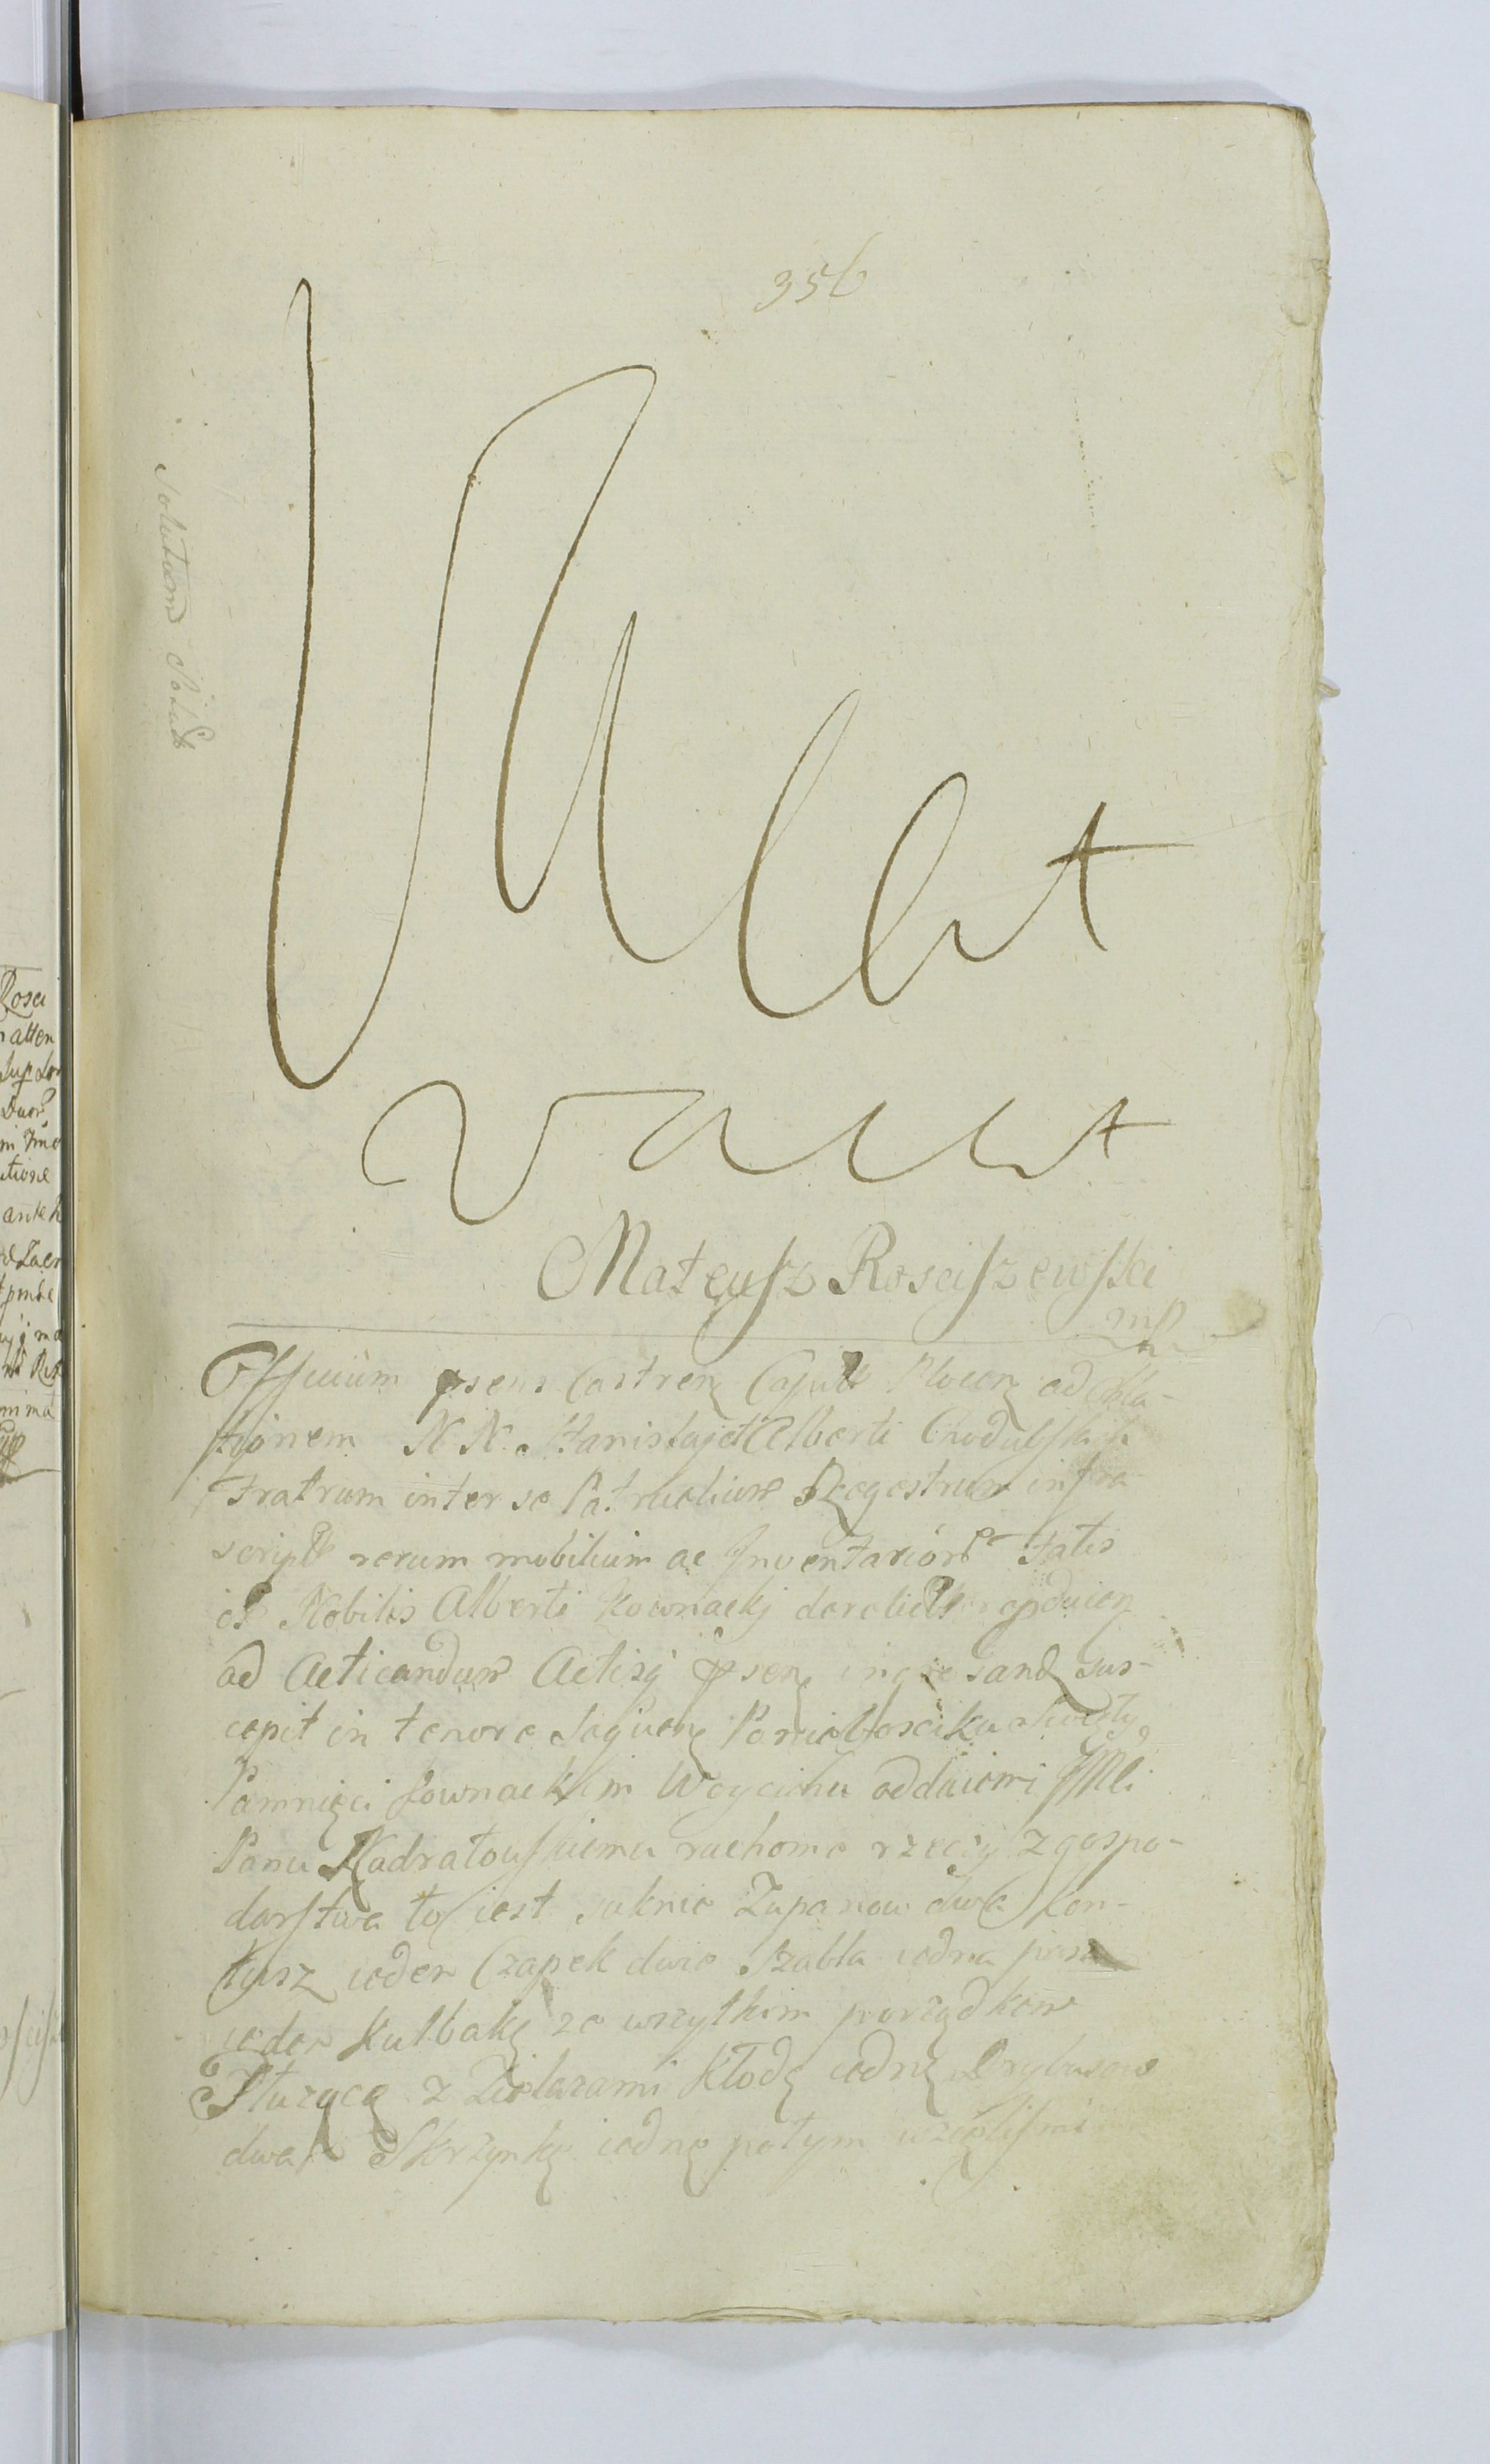 356
Vacat
vacat
Mateusz Rosciszewski
mp
Officium psens Castren Capitle Plocen ad obla-
tionem N N Stanislai et Alberti Chodubskich
Fratrum inter se Patruelium Regestrum infra
script rerum mobilium ac Inventarior Fatis
ol Nobilis Alberti Kownackj derelict
ad Acticandum Actisq psen ingrosand sus-
cepit in tenore sequen Ponieboscziku Swięty
Pamnięci Kownackim Woyciehu oddaiemi JMci
Panu Nadratowskiemu ruchome rzeczy z gospo-
darstwa to iest suknie Zupanow dwa kon-
tusz ieden Czapek dwie Szabla iedna pas
ieden Kulbakę ze wszytkim porządkem
Słuzącą z Zielazami Kłodę iednę
dwa Skrzynkę iednę potym wzielismi
solutum